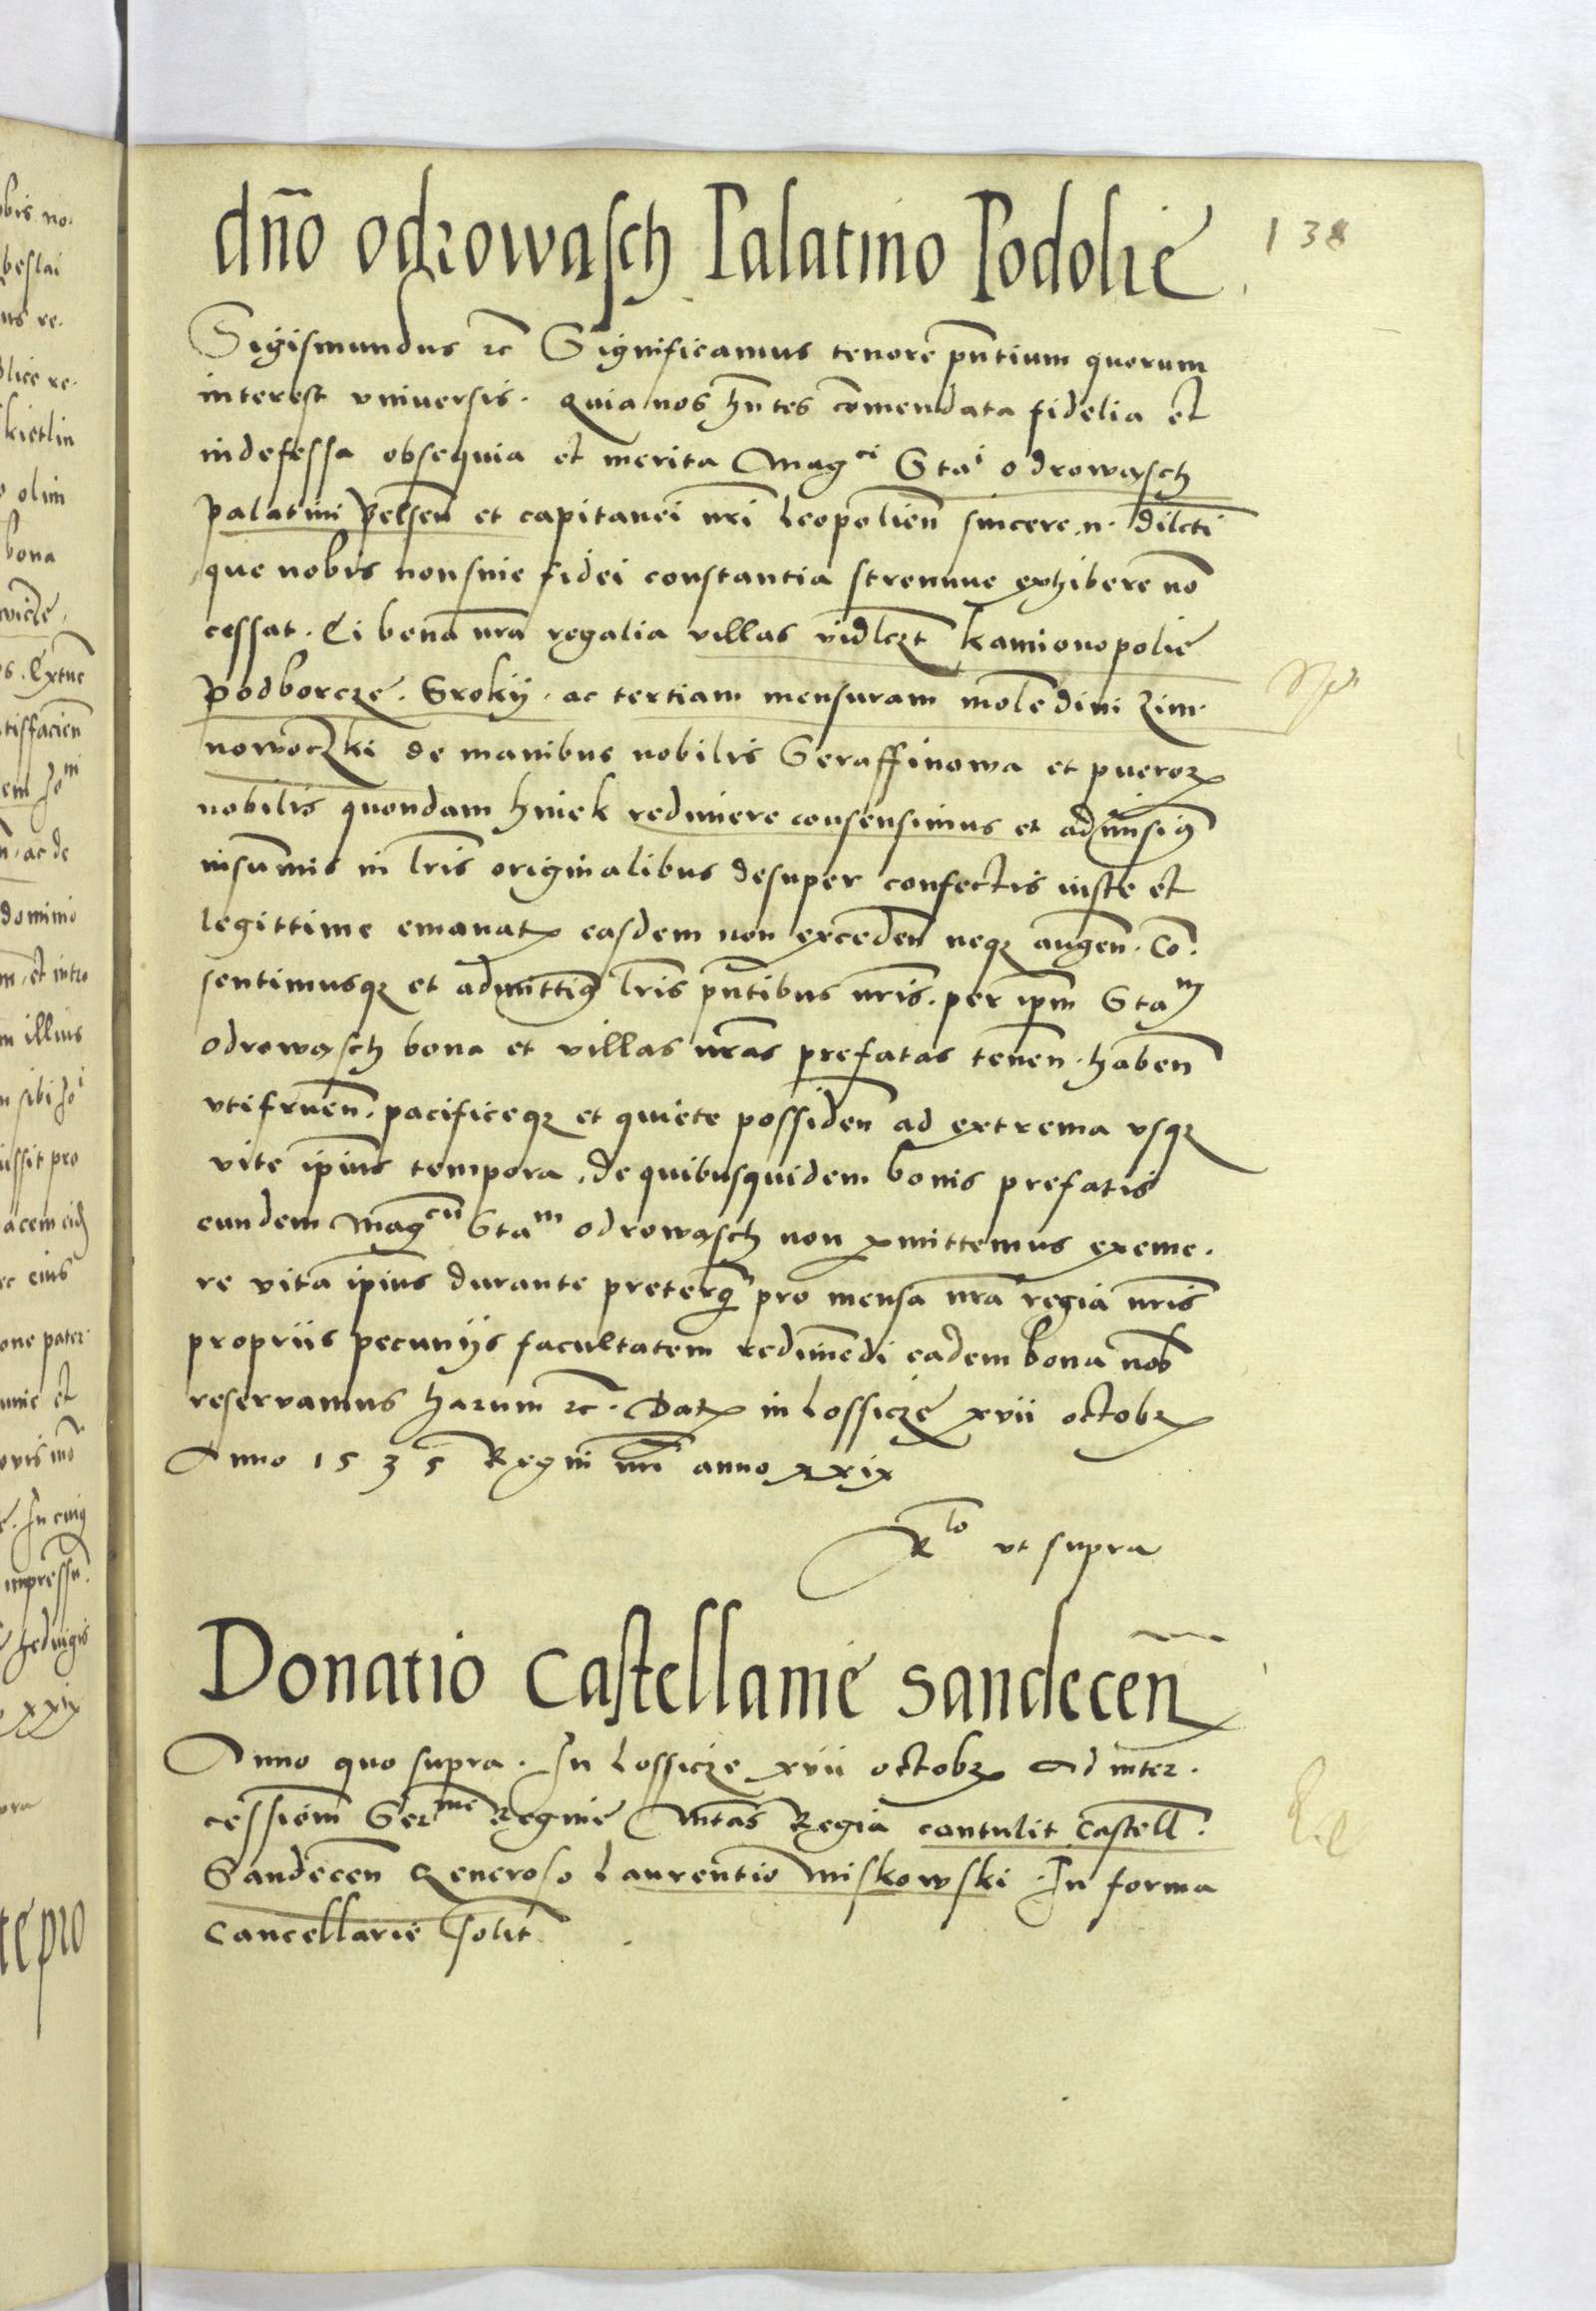 dño odrowasch Palatino Podolie
138
Sigismundus rc Significamus tenore pñtium quorum
interest vniversis. Quia nos hñtes cõmendata fidelia et
indefessa obsequia et merita Mag^ci Sta^i odrowasch
palatini Belseñ et capitanei nri Leopolieñ sincere n. dilcti
que nobis non sine fidei constantia strennue exhibere nõ
cessat. Ei bona nra regalia villas vidlczt kamionopolie
podborcze. Sroky. ac tertiam mensuram molẽdini Zim.
nowoczki de manibus nobilis Seraffinowa et pueroꝝ
nobilis quondam hniek redimere consensimus et admisimꝰ
in sum̃is in lris originalibus desuper confectis iuste et
legittime emanatꝝ easdem non excedeñ neqꝫ augeñ. Cõ.
sentimusqꝫ et admittimꝰ lris pñtibus nris. per ipm̃ Sta^m
odrowasch bona et villas nras prefatas teneñ. habeñ
vtifrueñ. pacificeqꝫ et quiete possideñ ad extrema vsqꝫ
vite ipius tempora. de quibusquidem bonis prefatis
eundem Mag^cũ Sta^m odrowasch non ꝑmittemus exime.
re vita ipius durante preterꝗ pro mensa nra regia nris
propriis pecunijs facultatem redimẽdi eadem bona nob
reservamus harum rc. Datꝝ in Lossicze xvii octobꝝ
Anno 1535 Regni nri anno xxix
R^lo vt supra
Donatio Castellanie Sandeceñ
Anno quo supra. In Lossicze xvii octobꝝ Ad inter.
cessionẽ Ser^me Regine Mtas Regia contulit Castell.
Sandeceñ Generoso Laurentio Miskowski. In forma
Cancellarie solit.